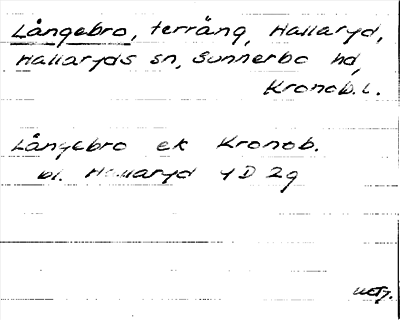 Långebro, terräng, Hallaryd,
Hallaryds sn, Sunnerbo hd,
Kronob. l.
Långebro ek Kronob.
bl. Hallaryd 4D 2g